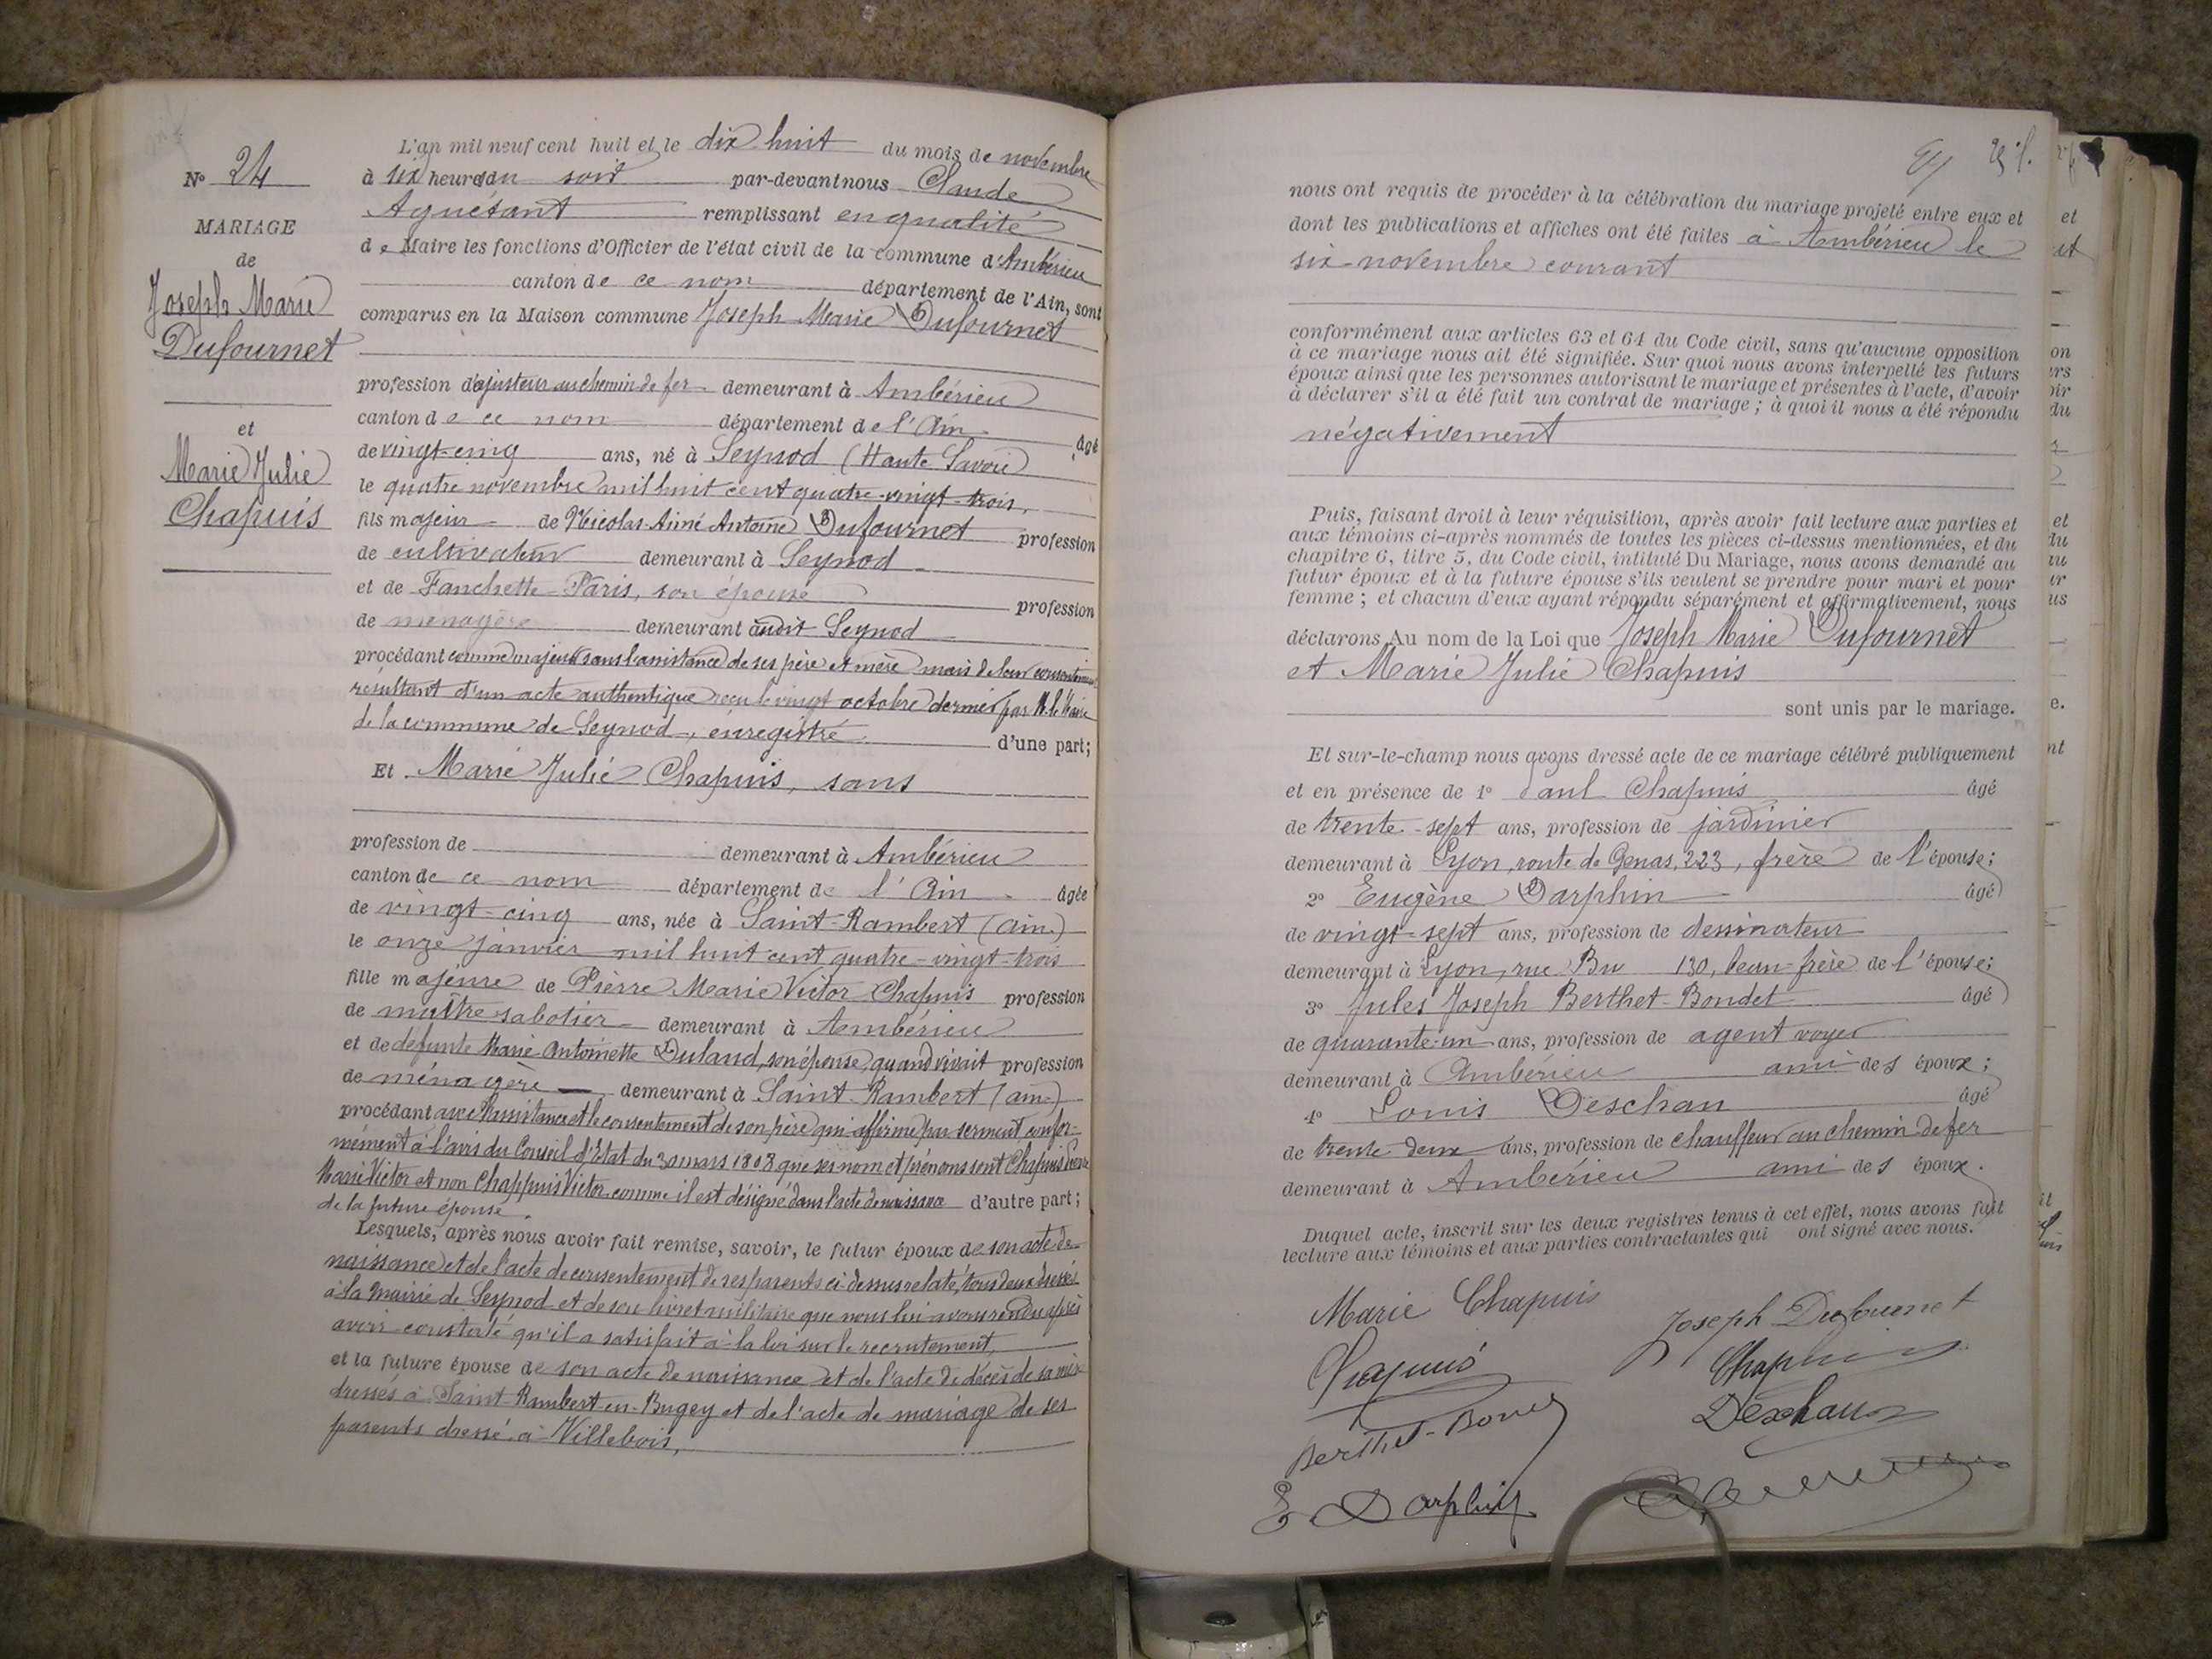 N° 24
MARIAGE
de
Joseph Marie
Dufournet
et
Marie Julie
Chapuis
L'an mil neuf cent huit et le dix huit du mois de novembre
à six heures du soir par-devant nous Claude
Aguétant remplissant en qualité
de Maire les fonctions d'Officier de l'état civil de la commune d'Ambérieu
canton de ce nom département de l'Ain, sont
comparus en la Maison commune Joseph Marie Dufournet
profession d'ajusteur au chemin de fer demeurant à Ambérieu
canton de ce nom département de l'Ain âgé
de vingt-cinq ans, né à Seynod (Haute Savoie)
le quatre novembre mil huit cent quatre-vingt-trois,
fils majeur de Nicolas Aimé Antoine Dufournet profession
de cultivateur demeurant à Seynod
et de Fanchette Paris, son épouse profession
de ménagère demeurant audit Seynod
procédant comme majeur sans l'assistance de ses père et mère mais de leur consentement
résultant d'un acte authentique reçu le vingt octobre dernier par M. le Maire
de la commune de Seynod, enregistré d'une part;
Et Marie Julie Chapuis, sans
profession de demeurant à Ambérieu
canton de ce nom département de l'Ain âgée
de vingt-cinq ans, née à Saint-Rambert (Ain)
le onze janvier mil huit cent quatre-vingt-trois
fille majeure de Pierre Marie Victor Chapuis profession
de maître sabotier demeurant à Ambérieu
et de défunte Marie Antoinette Dulaud, son épouse, quand vivait profession
de ménagère demeurant à Saint-Rambert (Ain)
procédant avec l'assistance et le consentement de son père qui affirme par serment, confor-
mément à l'avis du Conseil d'Etat du 30 mars 1808 que ses nom et prénoms sont Chapuis Pierre
Marie Victor et non Chappuis Victor comme il est désigné dans l'acte de naissance d'autre part;
de la future épouse.
Lesquels, après nous avoir fait remise, savoir, le futur époux de son acte de
naissance et de l'acte de consentement de ses parents ci-dessus relaté, tous deux dressés
à la mairie de Seynod et de son livret militaire que nous lui avons rendu après
avoir constaté qu'il a satisfait à la loi sur le recrutement,
et la future épouse de son acte de naissance et de l'acte de décès de sa mère
dressés à Saint Rambert-en-Bugey et de l'acte de mariage de ses
parents dressé à Villebois,
nous ont requis de procéder à la célébration du mariage projeté entre eux et
dont les publications et affiches ont été faites à Ambérieu le
six novembre courant
conformément aux articles 63 et 64 du Code civil, sans qu'aucune opposition
à ce mariage nous ait été signifiée. Sur quoi nous avons interpellé les futurs
époux ainsi que les personnes autorisant le mariage et présentes à l'acte, d'avoir
à déclarer s'il a été fait un contrat de mariage; à quoi il nous a été répondu
négativement
Puis, faisant droit à leur réquisition, après avoir fait lecture aux parties et
aux témoins ci-après nommés de toutes les pièces ci-dessus mentionnées, et du
chapitre 6, titre 5, du Code civil, intitulé Du Mariage, nous avons demandé au
futur époux et à la future épouse s'ils veulent se prendre pour mari et pour
femme; et chacun d'eux ayant répondu séparément et affirmativement, nous
déclarons Au nom de la Loi que Joseph Marie Dufournet
et Marie Julie Chapuis
sont unis par le mariage.
Et sur-le-champ nous avons dressé acte de ce mariage célébré publiquement
et en présence de 1° Paul Chapuis âgé
de trente-sept ans, profession de jardinier
demeurant à Lyon, route de Genas, 223, frère de l'épouse;
2° Eugène Darphin âgé
de vingt-sept ans, profession de dessinateur
demeurant à Lyon, rue 130, beau-frère de l'épouse;
3° Jules Joseph Berthet-Bondet âgé
de quarante-un ans, profession de agent voyer
demeurant à Ambérieu ami des époux;
4° Louis Deschan âgé
de trente deux ans, profession de chauffeur au chemin de fer
demeurant à Ambérieu ami des époux.
Duquel acte, inscrit sur les deux registres tenus à cet effet, nous avons fait
lecture aux témoins et aux parties contractantes qui ont signé avec nous.
Marie Chapuis
Joseph Dufournet
Chapuis
Chapuis
Berthet-Bondet
Deschan
E. Darphin